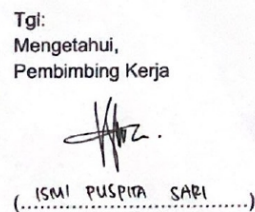 Tgl:
Mengetahui,
Pembimbing Kerja
(ISMI PUSPITA SARI)